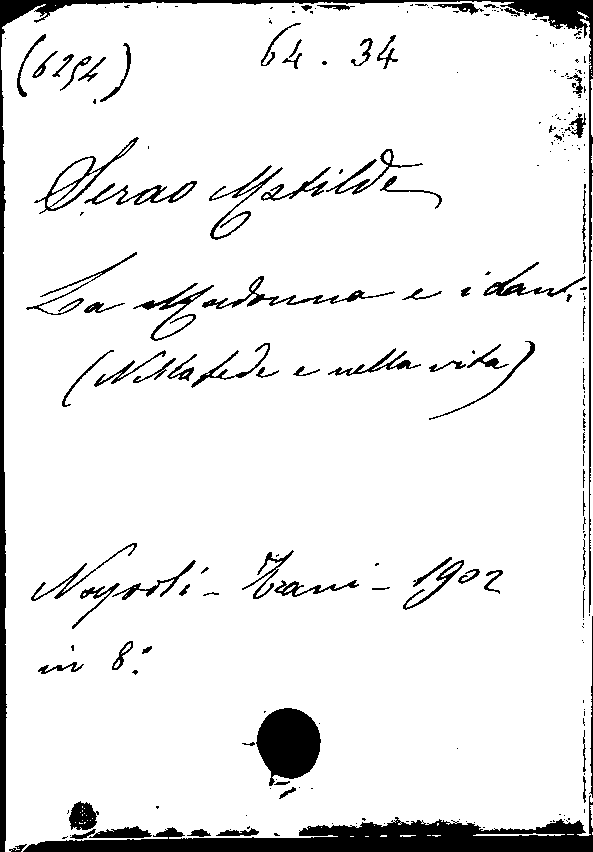 (6254) 64.34
Serao Matilde
La Madonna e i Santi
(Nella fede e nella vita)
Napoli - Trani - 1902
in 8°